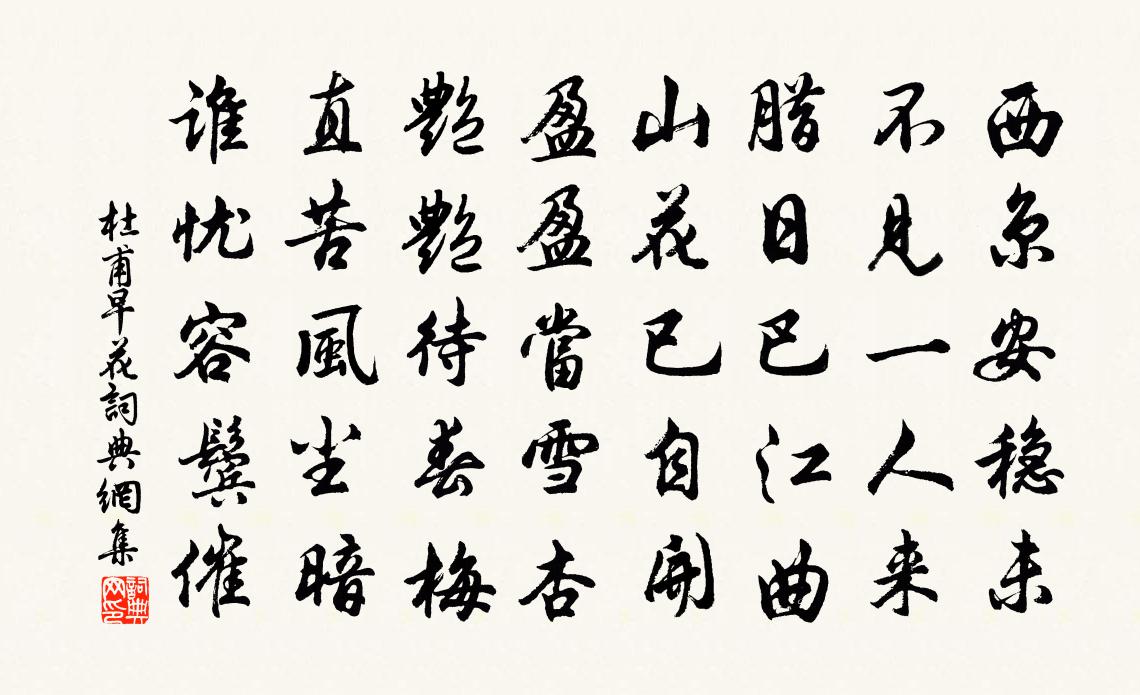 西京安稳未
不見一人来
腊日巴江曲
山花已自開
盈盈當雪杏
艷艷待春梅
直苦風尘暗
谁忧容鬓催
杜甫早花詞典網集
詞典网印